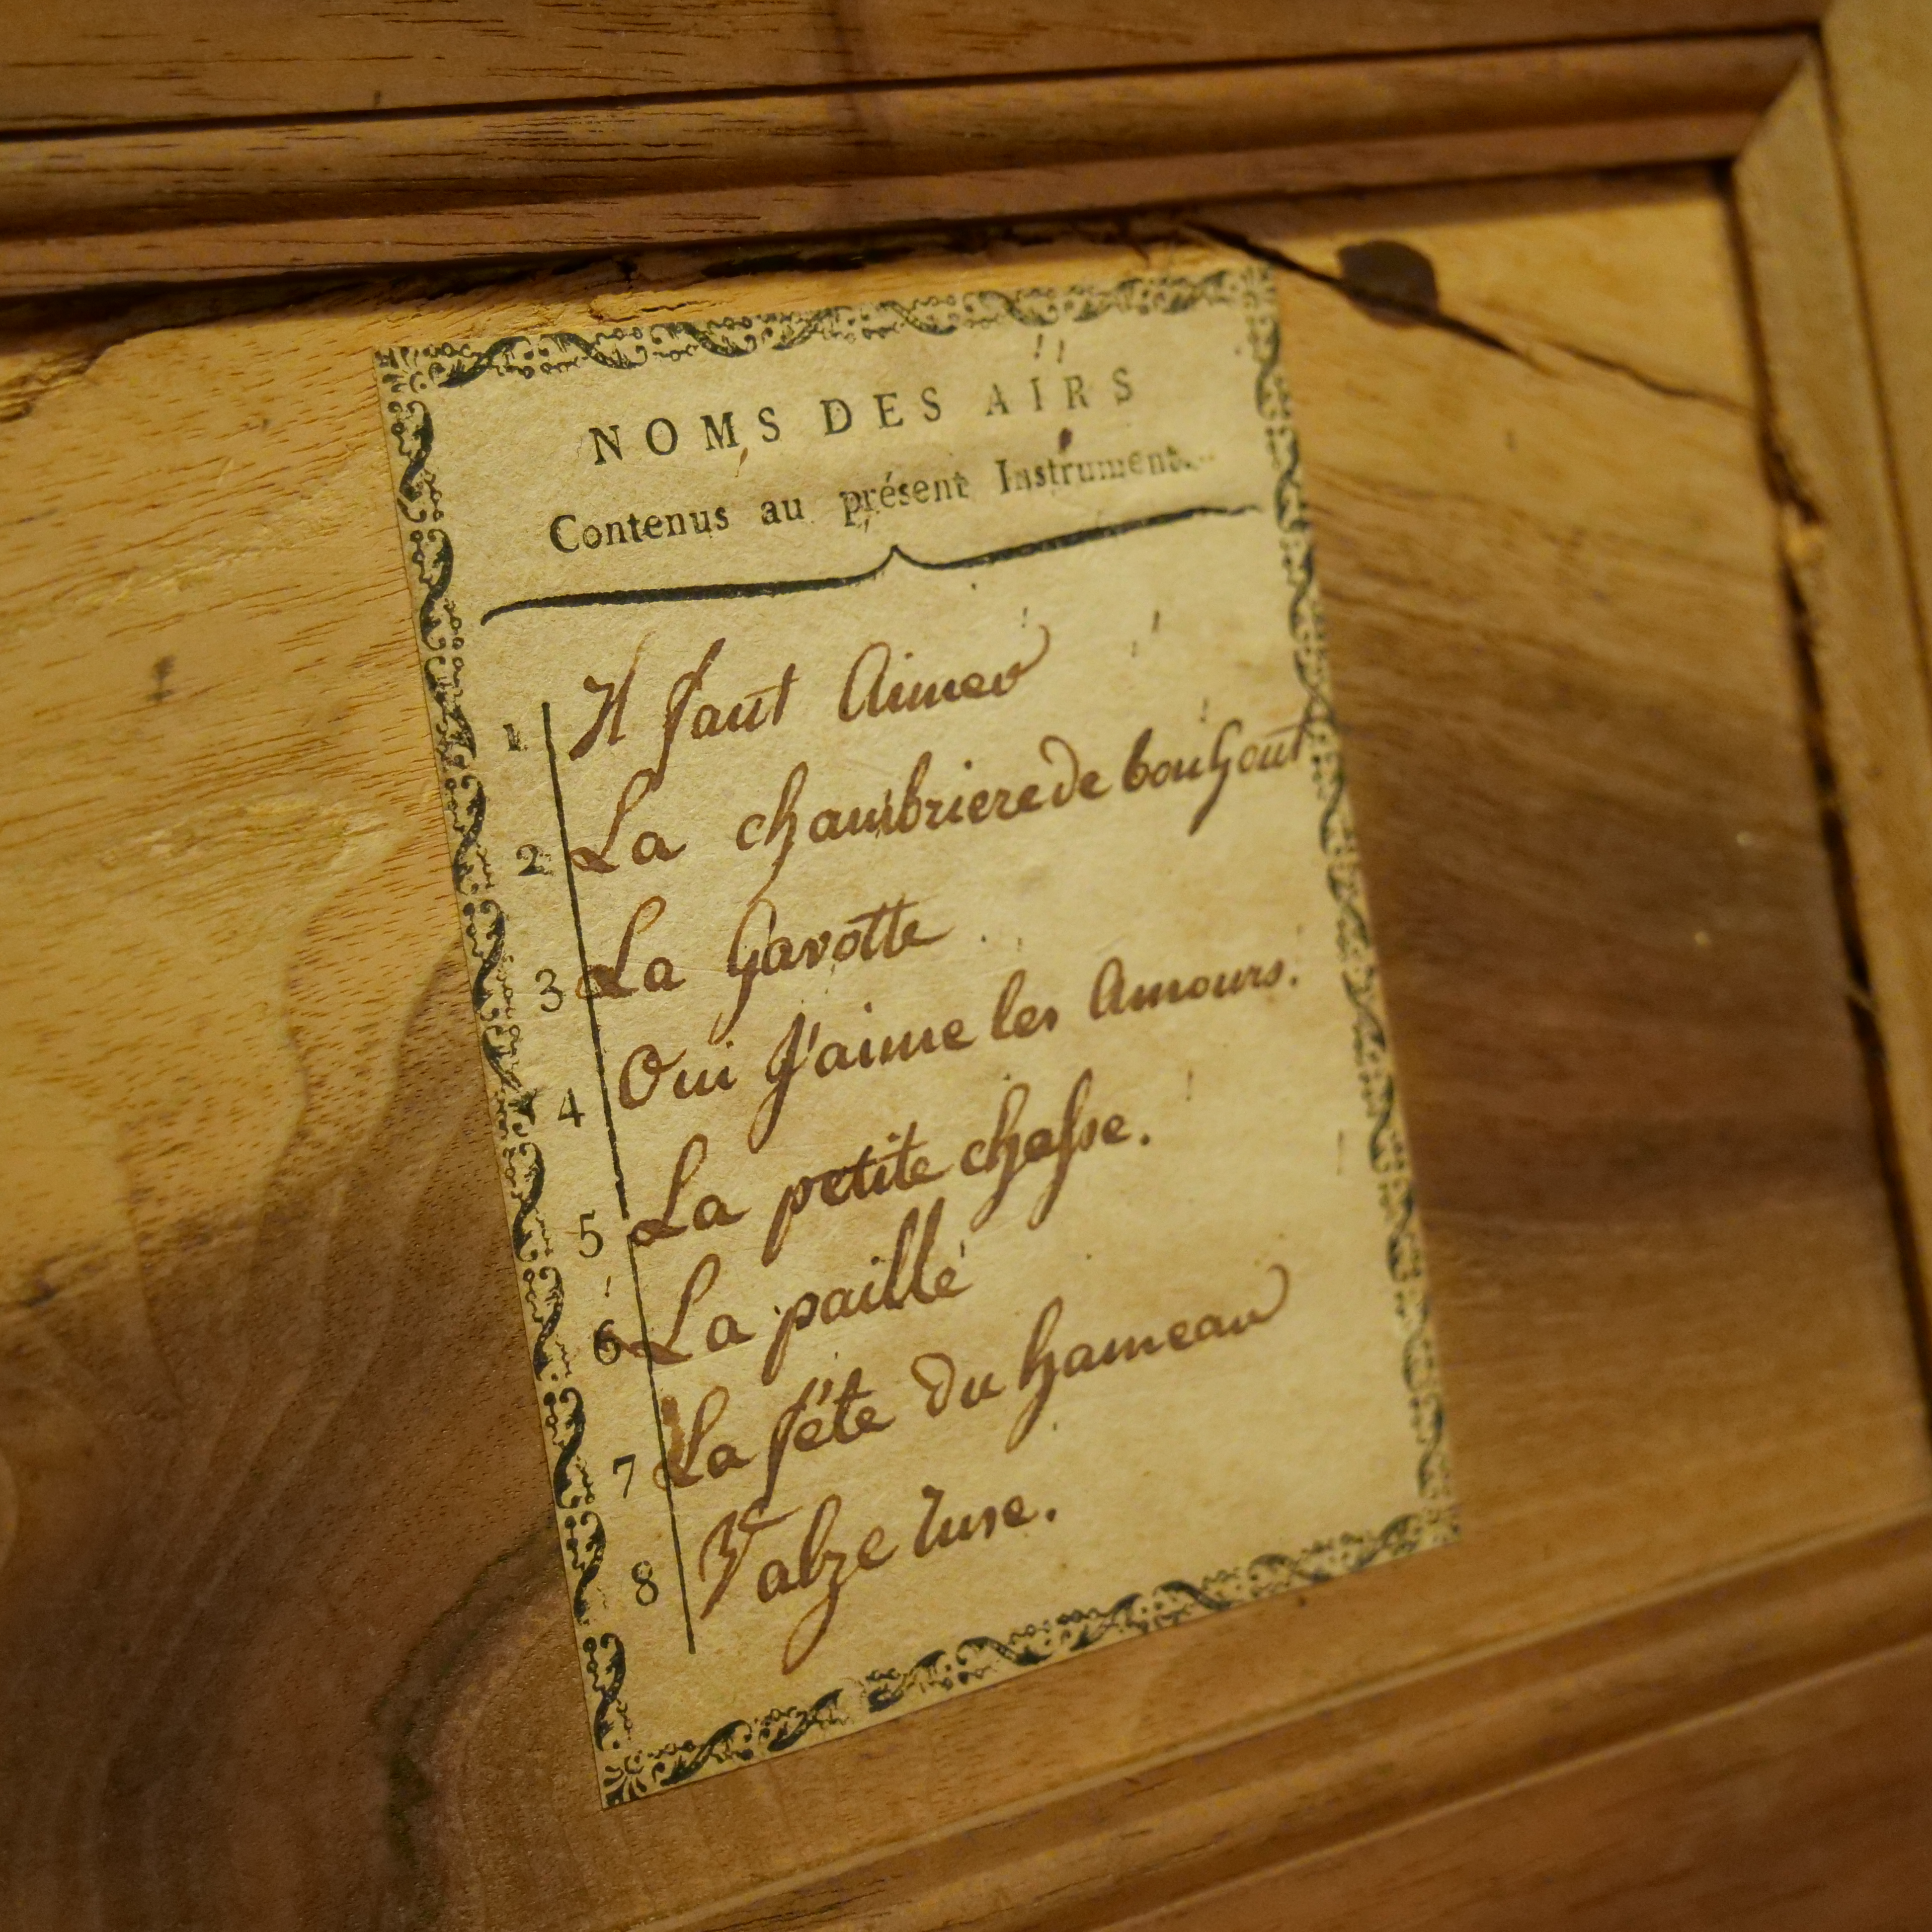 NOMS DES AIRS
Contenus au présent Instrument.
1 Il faut Aimer
2 La chambriere de bon Gout
3 La Gavotte
4 Oui J'aime les Amours.
5 La petite chasse.
6 La paille
7 La fête du hameau
8 Valze ruse.